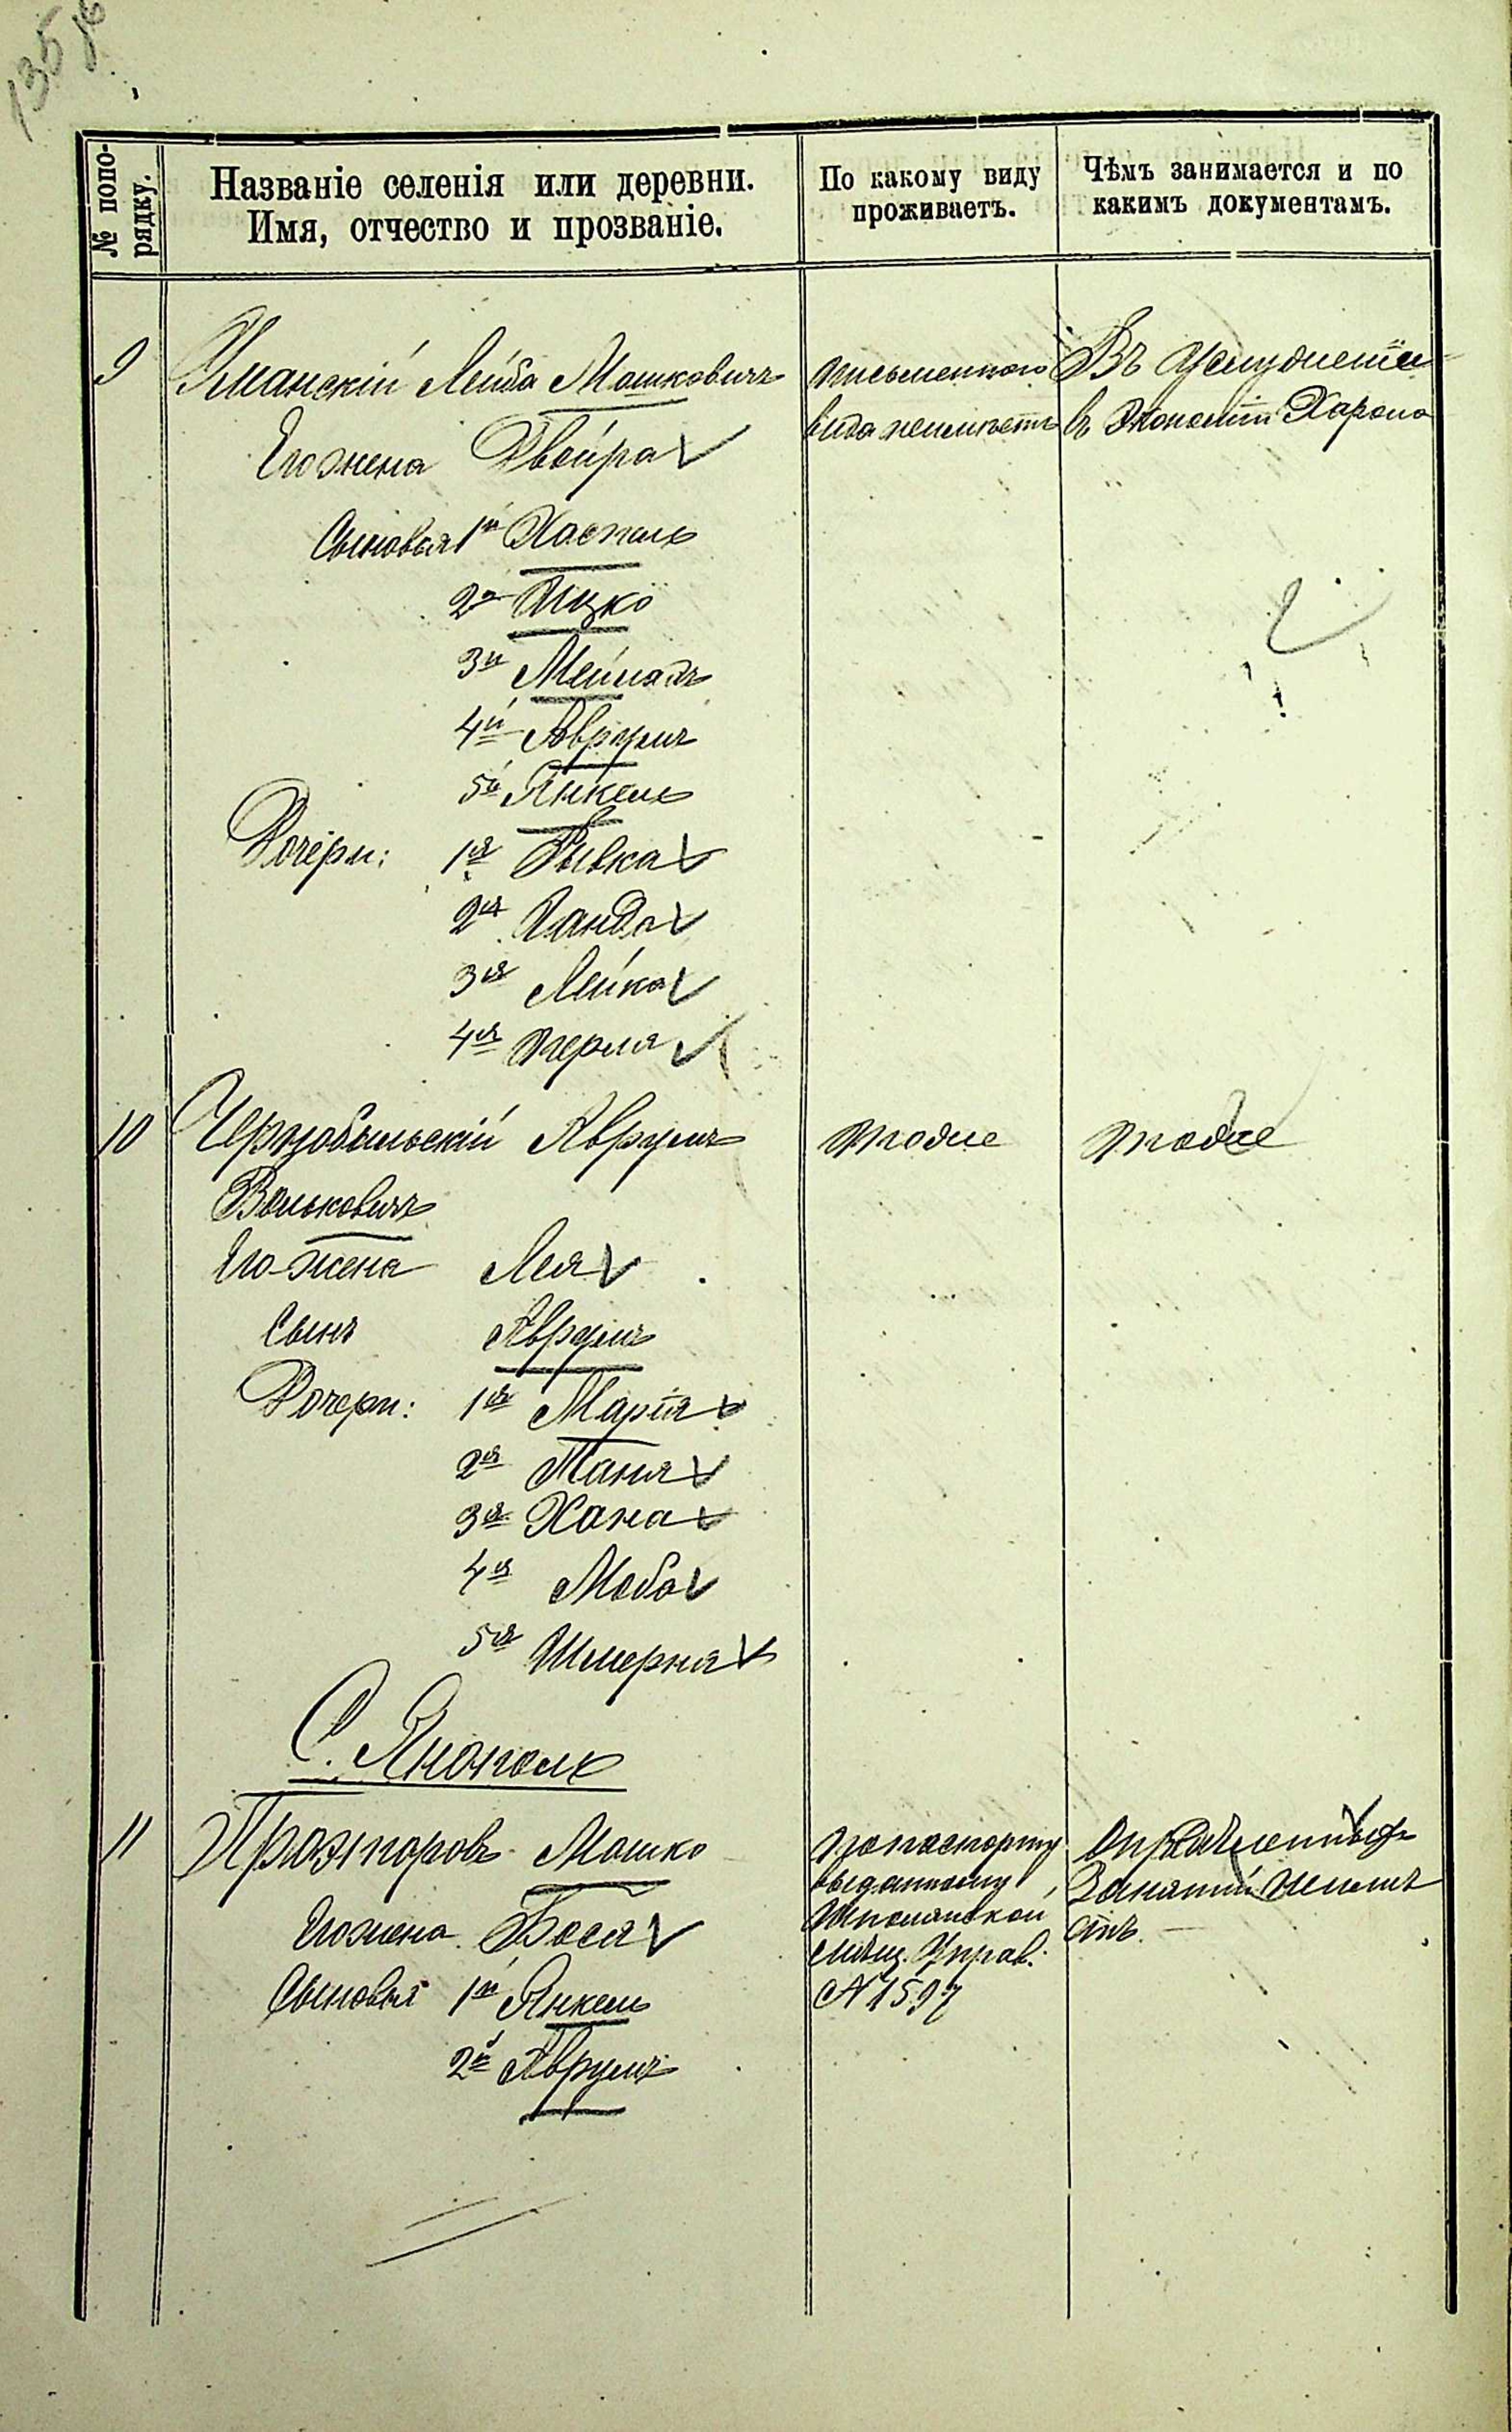 135
№ попо-
рядку.
Названіе селенія или деревни.
Имя, отчество и прозваніе.
По какому виду
проживаетъ.
Чѣмъ занимается и по
какимъ документамъ.
9 Уманскій Лейба Мошковичъ
Его жена Двойра
Сыновья 1й Хаскель
2й Ицко
3й
4й Аврумъ
5й Янкель
Дочери: 1я Рывка
2я
3я Лейка
4я Перля
письменнаго
вида неимѣетъ
Въ услуженіи
въ Экономіи
10 Чернобыльскій Аврумъ
Вольковичъ
Его жена Лея
Сынъ Аврумъ
Дочери: 1я Марія
2я Таня
3я Хана
4я
5я
тоже
тоже
С. Янополь
11 Мошко
Его жена Бася
Сыновья 1й Янкель
2й Аврумъ
по паспорту
выданному
Шполянской
мѣщ. Управ.
№ 1597
Опредѣленныхъ
Занятій неимѣ
етъ.